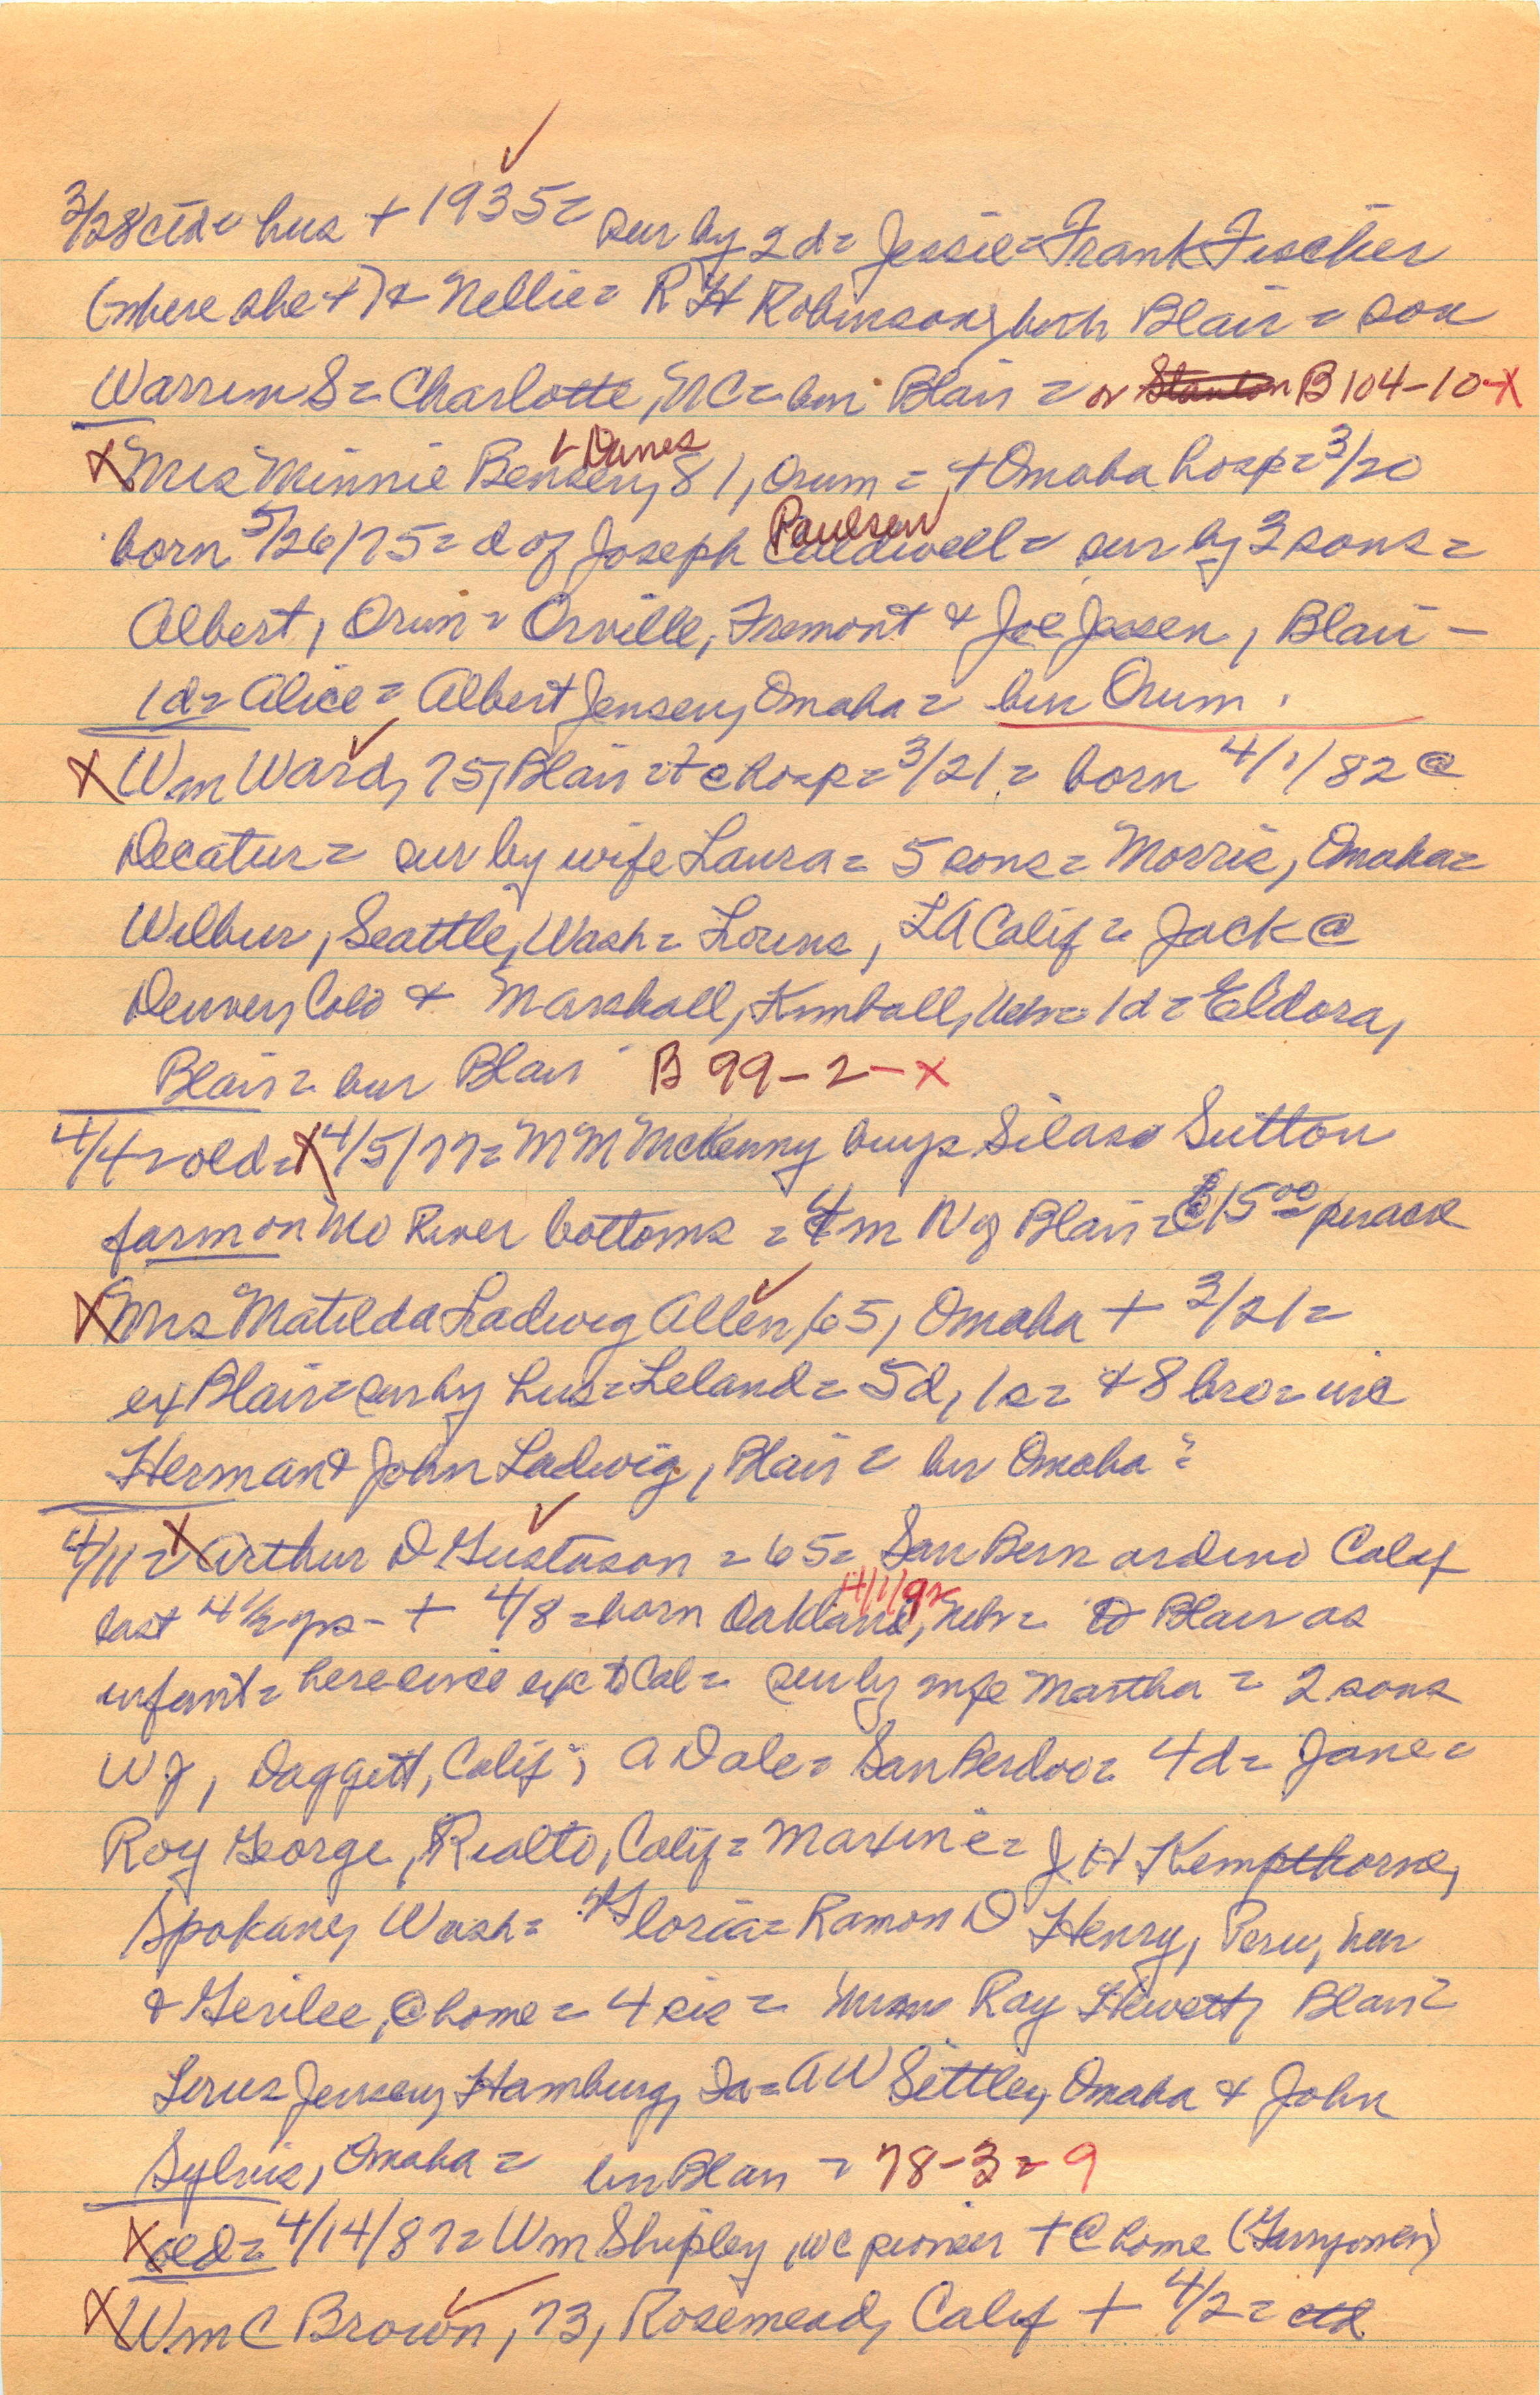 3/28 ctd = hus + 1935 = sur by 2 d = Jessie = Frank Fischer
(where she +) & Nellie = R H Robinson, both Blair = son
Warren S = Charlotte, NC = bur Blair = or Stanton B 104-10-X
X Mrs Minnie Bensen, 81, Orum = + Omaha hosp = 3/20
Danes
born 5/26/75 = d of Joseph Caldwell = sur by 3 sons =
Paulsen
Albert, Orum = Orville, Fremont & Joe Jensen, Blair -
1 d = Alice = Albert Jensen, Omaha = bur Orum.
X Wm Ward, 75, Blair = + @ hosp = 3/21 = born 4/1/82 @
Decatur = sur by wife Laura = 5 sons = Morris, Omaha =
Wilbur, Seattle, Wash = Lorens, LA Calif = Jack @
Denver, Colo & Marshall, Kimball, Neb = 1 d = Eldora,
Blair = bur Blair B 99-2-X
4/4 = old = X 4/5/77 = M M McKenny buys Silas Sutton
farm on Mo River bottoms = 4 m N of Blair = @ 15 00 per acre
X Mrs Matilda Ladwig Allen, 65, Omaha + 3/21 =
ex Blair = sur by hus = Leland = 5 d, 1 s = & 8 bro = inc
Herman & John Ladwig, Blair = bur Omaha =
4/11 = X Arthur D Gustason = 65 = San Bernardino Calif
last 4 1/2 yrs - + 4/8 = born Oakland, Neb = to Blair as
4/1/92
infant = here since exc to Cal = sur by wife Martha = 2 sons
W J, Daggett, Calif; A Dale = San Berdoo = 4 d = Jane =
Roy George, Rialto, Calif = Maxine = J H Kempthorne,
Spokane, Wash = Gloria = Ramon D Henry, Peru, Neb
& Gerilee, @ home = 4 sis = Mrs Ray Hewett, Blair =
Jensen, Hamburg, Ia = A W Settley, Omaha & John
Sylvis, Omaha = bur Blair = 78-3 = 9
X old = 4/14/87 = Wm Shipley, WC pioneer + @ home (Garryowen)
X Wm C Brown, 73, Rosemead, Calif + 4/2 = ctd